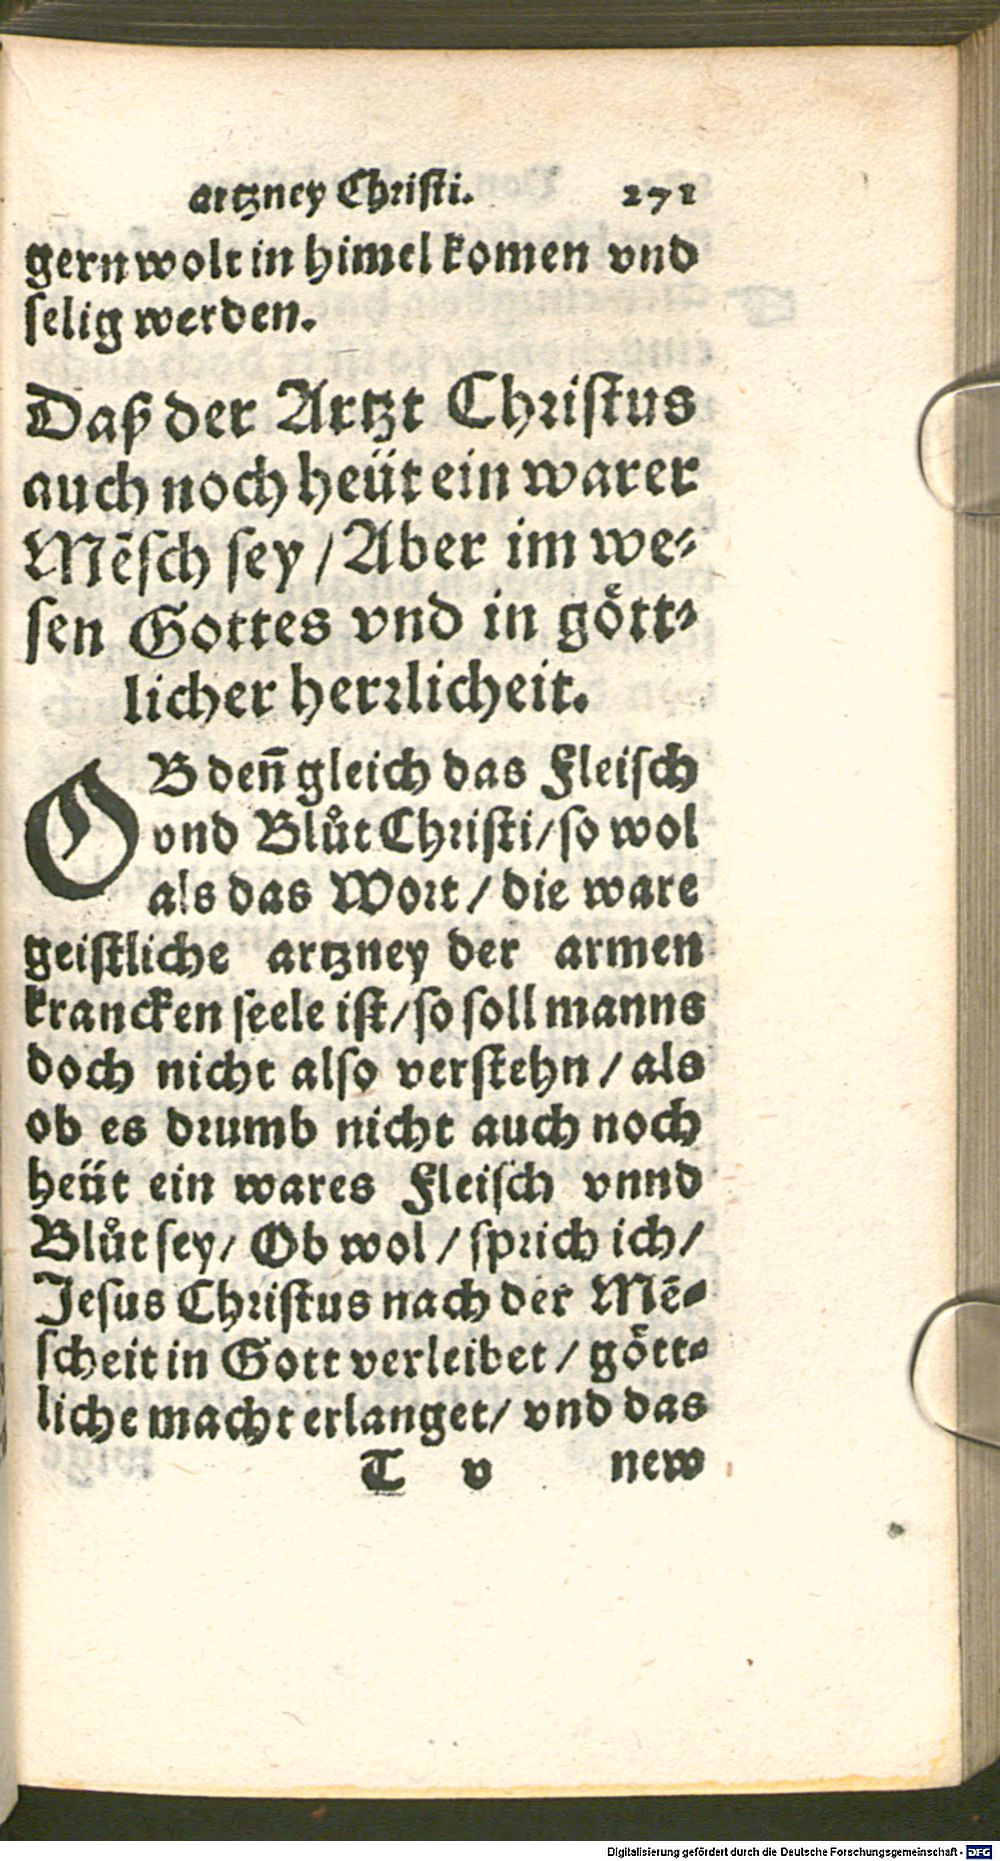 artzney Christi. 271
gern wolt in himel komen vnd
selig werden.
Daß der Artzt Christus
auch noch heüt ein warer
Mēsch sey / Aber im we-
sen Gottes vnd in gött-
licher herrlicheit.
OB den̄ gleich das Fleisch
vnd Blůt Christi / so wol
als das Wort / die ware
geistliche artzney der armen
krancken seele ist / so soll manns
doch nicht also verstehn / als
ob es drumb nicht auch noch
heüt ein wares Fleisch vnnd
Blůt sey / Ob wol / sprich ich /
Jesus Christus nach der Mē-
scheit in Gott verleibet / gött-
liche macht erlanget / vnd das
T v new
Digitalisierung gefördert durch die Deutsche Forschungsgemeinschaft - DFG